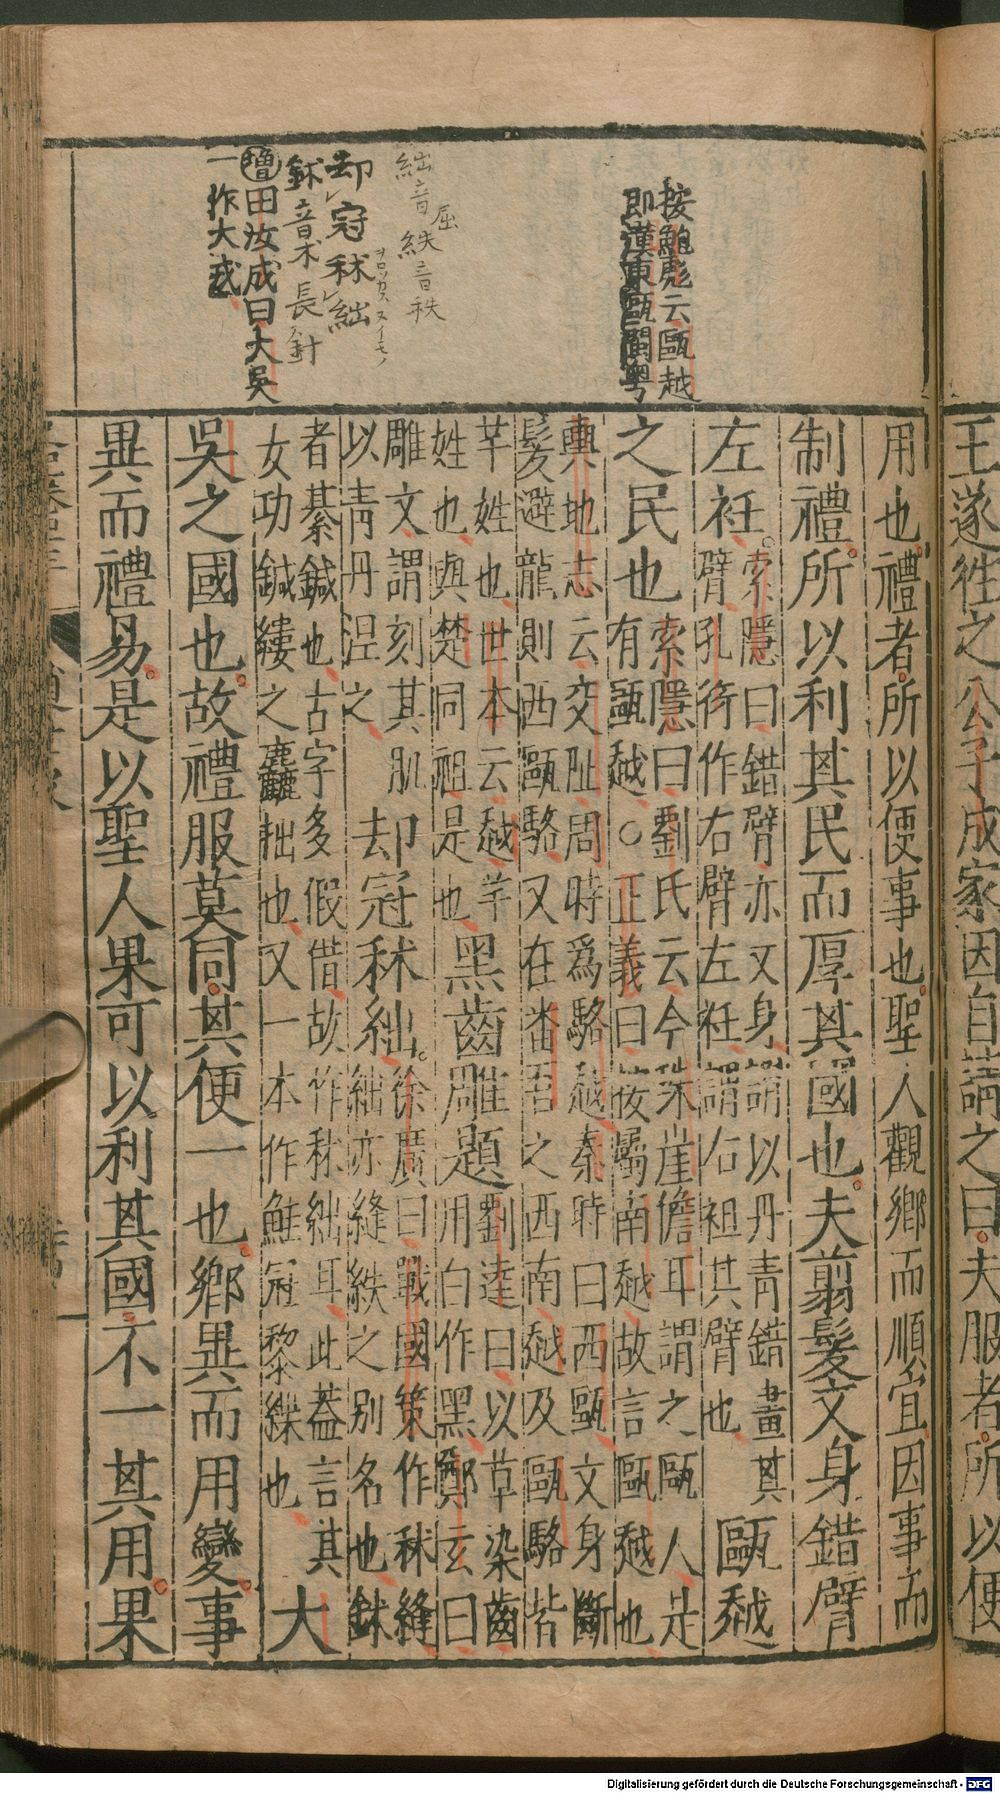 王遂往之公子成家因自請之曰夫服者所以便
按鮑彪云甌越
即漢東甌閩粤
絀音屈 紩音秩
却冠秫絀
鉥音术長針
増田汝成曰大吳
一作大戎
用也禮者所以便事也聖人觀鄉而順宜因事而
制禮所以利其民而厚其國也夫翦髮文身錯臂
左衽索隱曰錯臂亦文身謂以丹青錯畫其
臂孔衍作右臂左衽謂右袒其臂也甌越
之民也索隱曰劉氏云今珠崖儋耳謂之甌人是
有甌越○正義曰按屬南越故言甌越也
輿地志云交阯周時爲駱越秦時曰西甌文身斷
髮避龍則西甌駱又在番吾之西南越及甌駱皆
芊姓也世本云越芊
姓也與楚同祖是也黑齒雕題劉逵曰以草染齒
用白作黑鄭玄曰
雕文謂刻其肌
以青丹涅之却冠秫絀徐廣曰戰國策作秫縫
絀亦縫紩之別名也鉥
者綦鍼也古字多假借故作秫絀耳此蓋言其
女功鍼縷之麤拙也又一本作鮭冠黎緤也大
吳之國也故禮服莫同其便一也鄉異而用變事
異而禮易是以聖人果可以利其國不一其用果
Digitalisierung gefördert durch die Deutsche Forschungsgemeinschaft - DFG